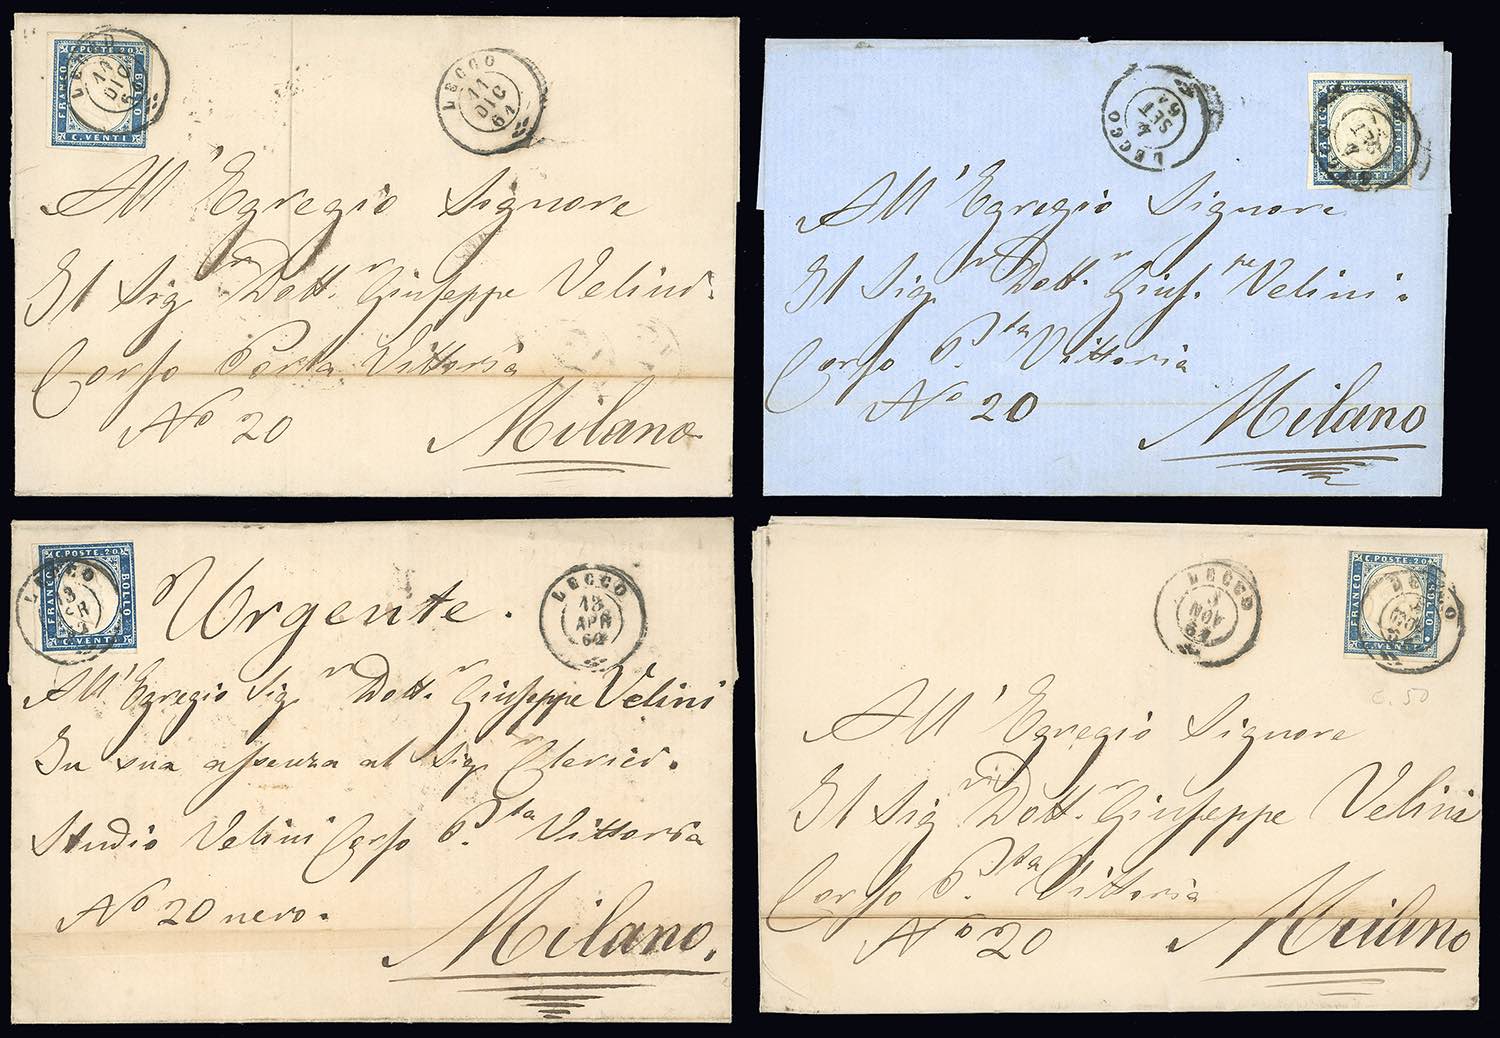 C. POSTE. 20
FRANCO
BOLLO
C. VENTI
LECCO
11
DIC
LECCO
11
DIC
61
All' Egregio Signore
Il Sigr Dottr Giuseppe Velini.
Corso Porta Vittoria
No 20
Milano
LECCO
4
SET
61
FRANCO
BOLLO
C. VENTI
4
SET
All' Egregio Signore
Il Sigr Dottr Giuspe Velini.
Corso Pta Vittoria
No 20
Milano
C. POSTE. 20
FRANCO
BOLLO
C. VENTI
LECCO
13
APR
Urgente.
LECCO
13
APR
62
All' Egregio Sigr Dottr Giuseppe Velini
In sua assenza al Sigr Clerici.
Studio Velini Corso Pta Vittoria
No 20 nero.
Milano.
LECCO
NOV
61
C. POSTE. 20
FRANCO
BOLLO
C. VENTI
LECCO
C. 50
All' Egregio Signore
Il Sigr Dottr Giuseppe Velini
Corso Pta Vittoria
No 20
Milano